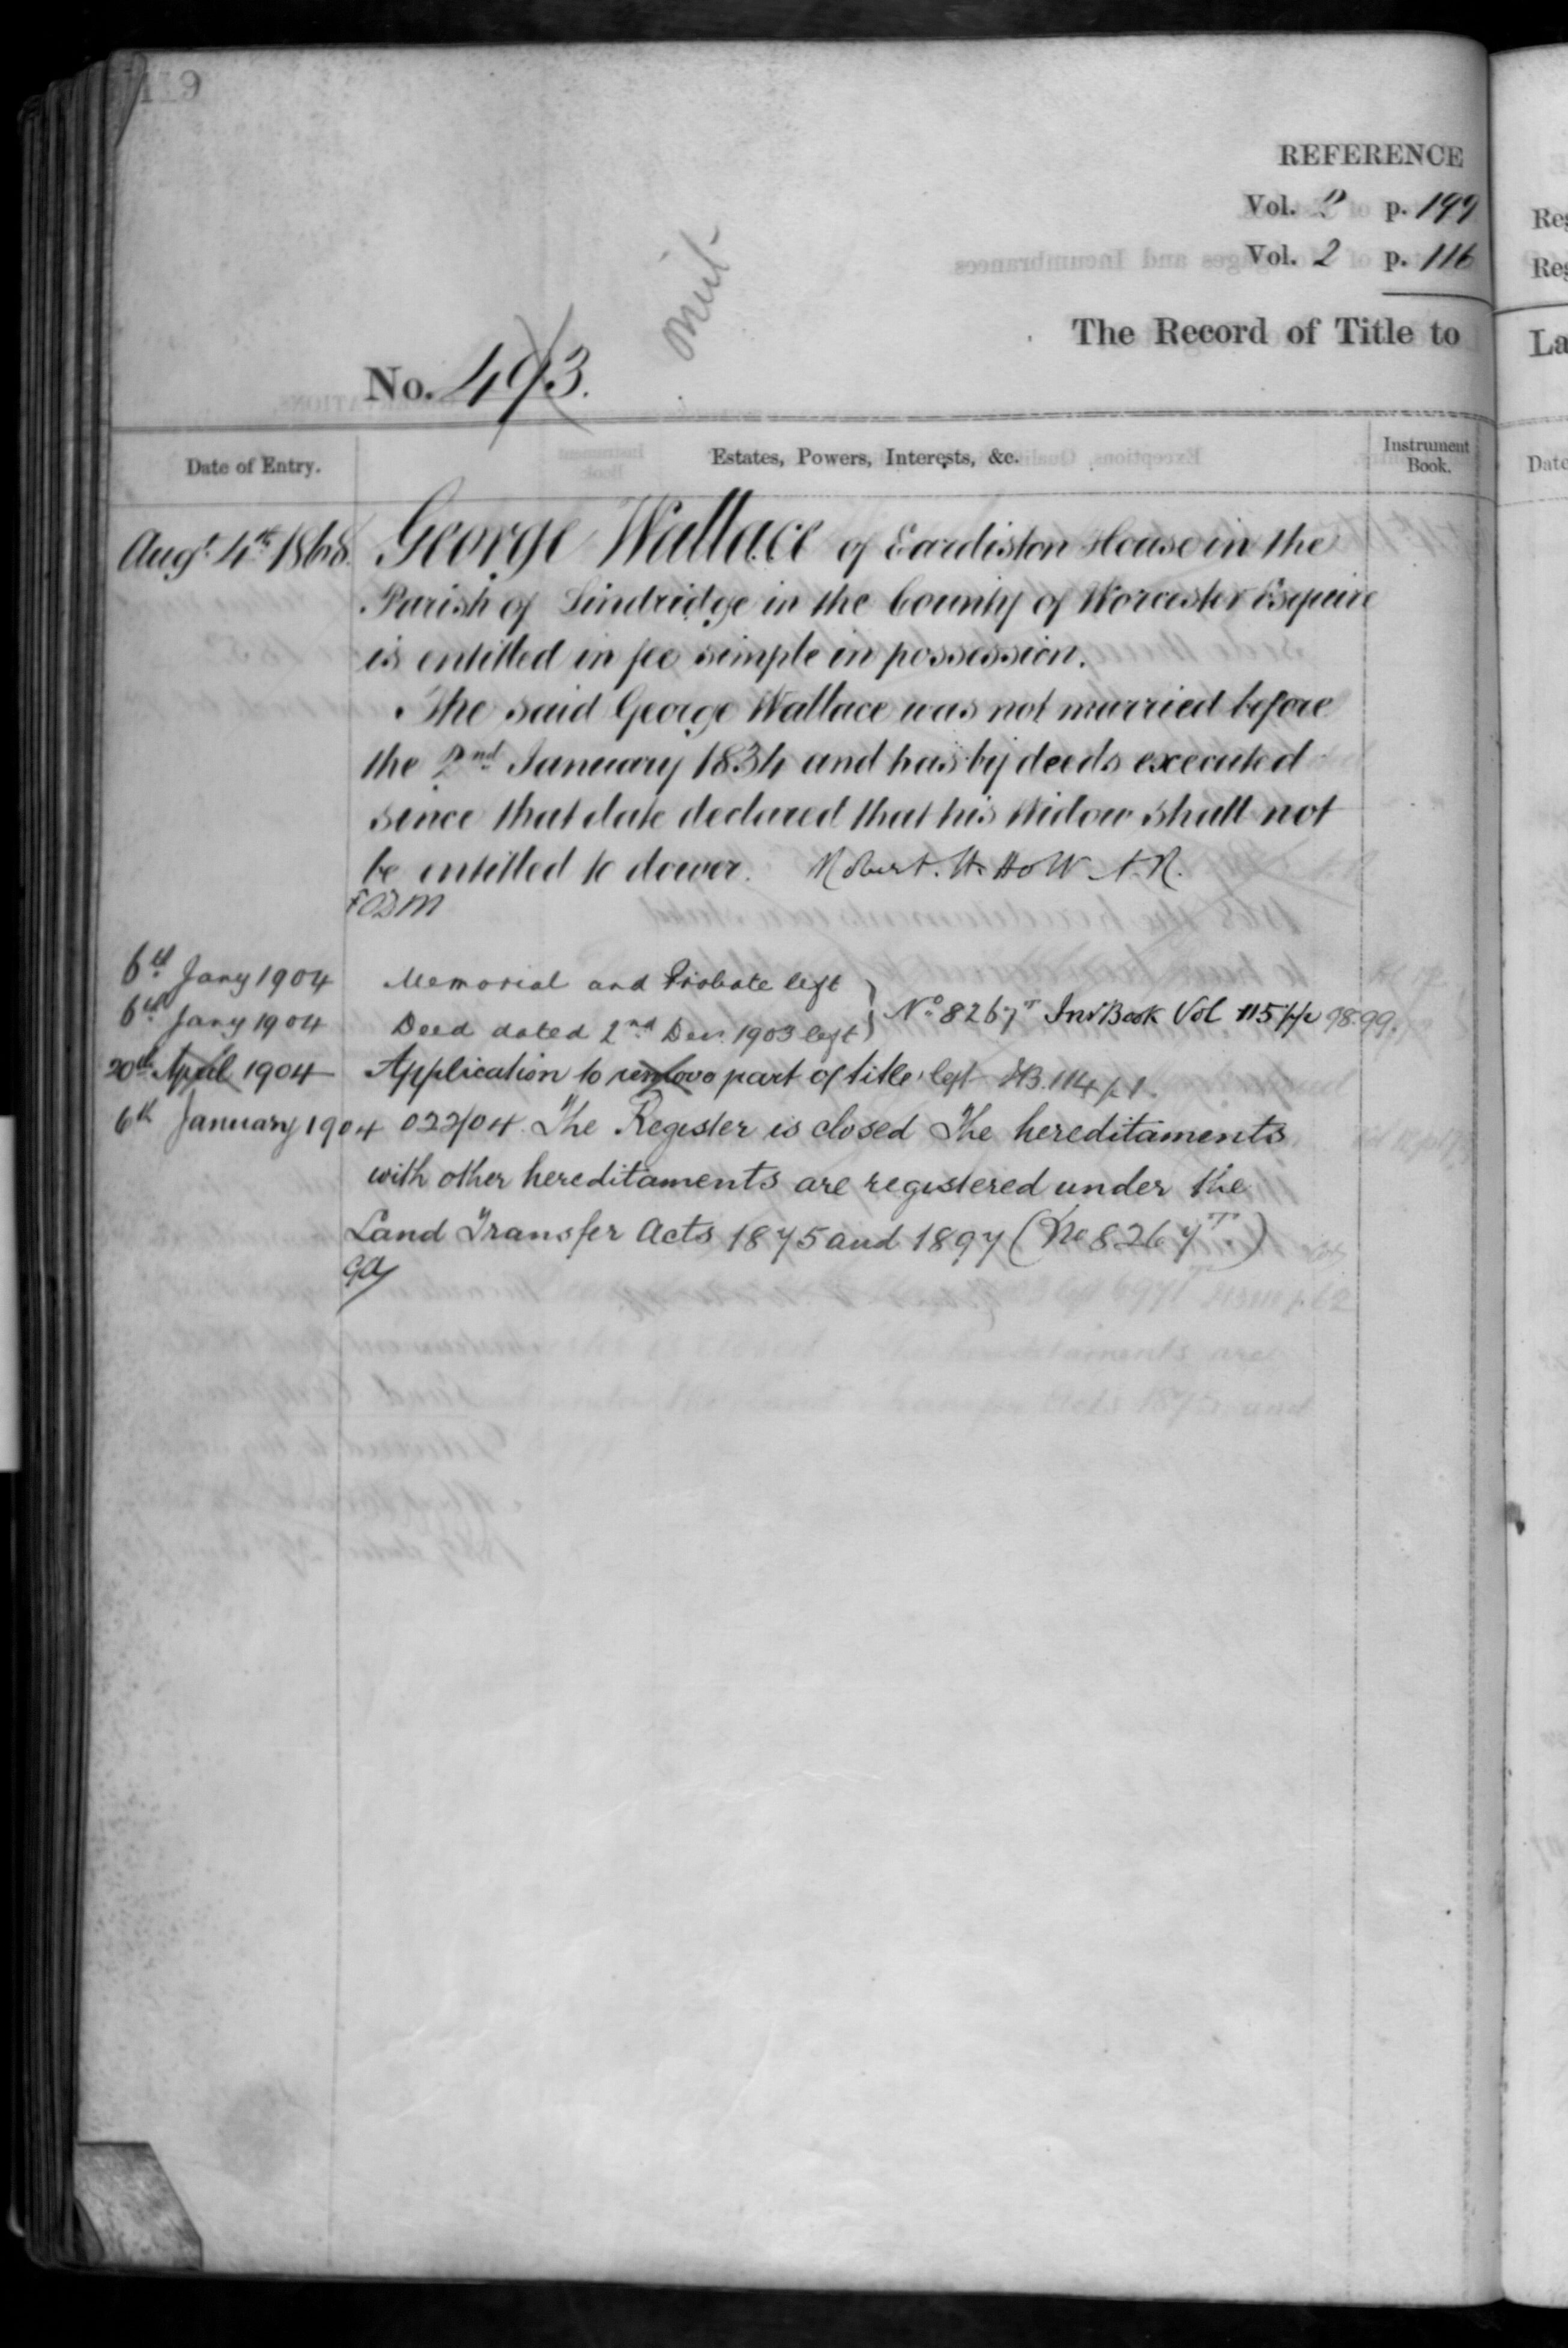 119
REFERENCE
Vol. 2 p. 199
Vol. 2 p. 116
The Record of Title to
omit
No. 493.
Date of Entry. Estates, Powers, Interests, &c. Instrument Book.
Augt. 4th 1868. George Wallace of Eardiston House in the
Parish of Lindridge in the County of Worcester Esquire
is entitled in fee simple in possession.
The said George Wallace was not married before
the 2nd January 1834 and has by deeds executed
since that date declared that his Widow shall not
be entitled to dower. Robert. H. Holt A.R.
6th Jany 1904 Memorial and Probate left
6th Jany 1904 Deed dated 2nd Decr. 1903 left } No 8267T Inst Book Vol 115 pp 98.99.
20th April 1904 Application to remove part of title left IB. 114 p 1.
6th January 1904 022/04. The Register is closed The hereditaments
with other hereditaments are registered under the
Land Transfer Acts 1875 and 1897 (No 8267T.)